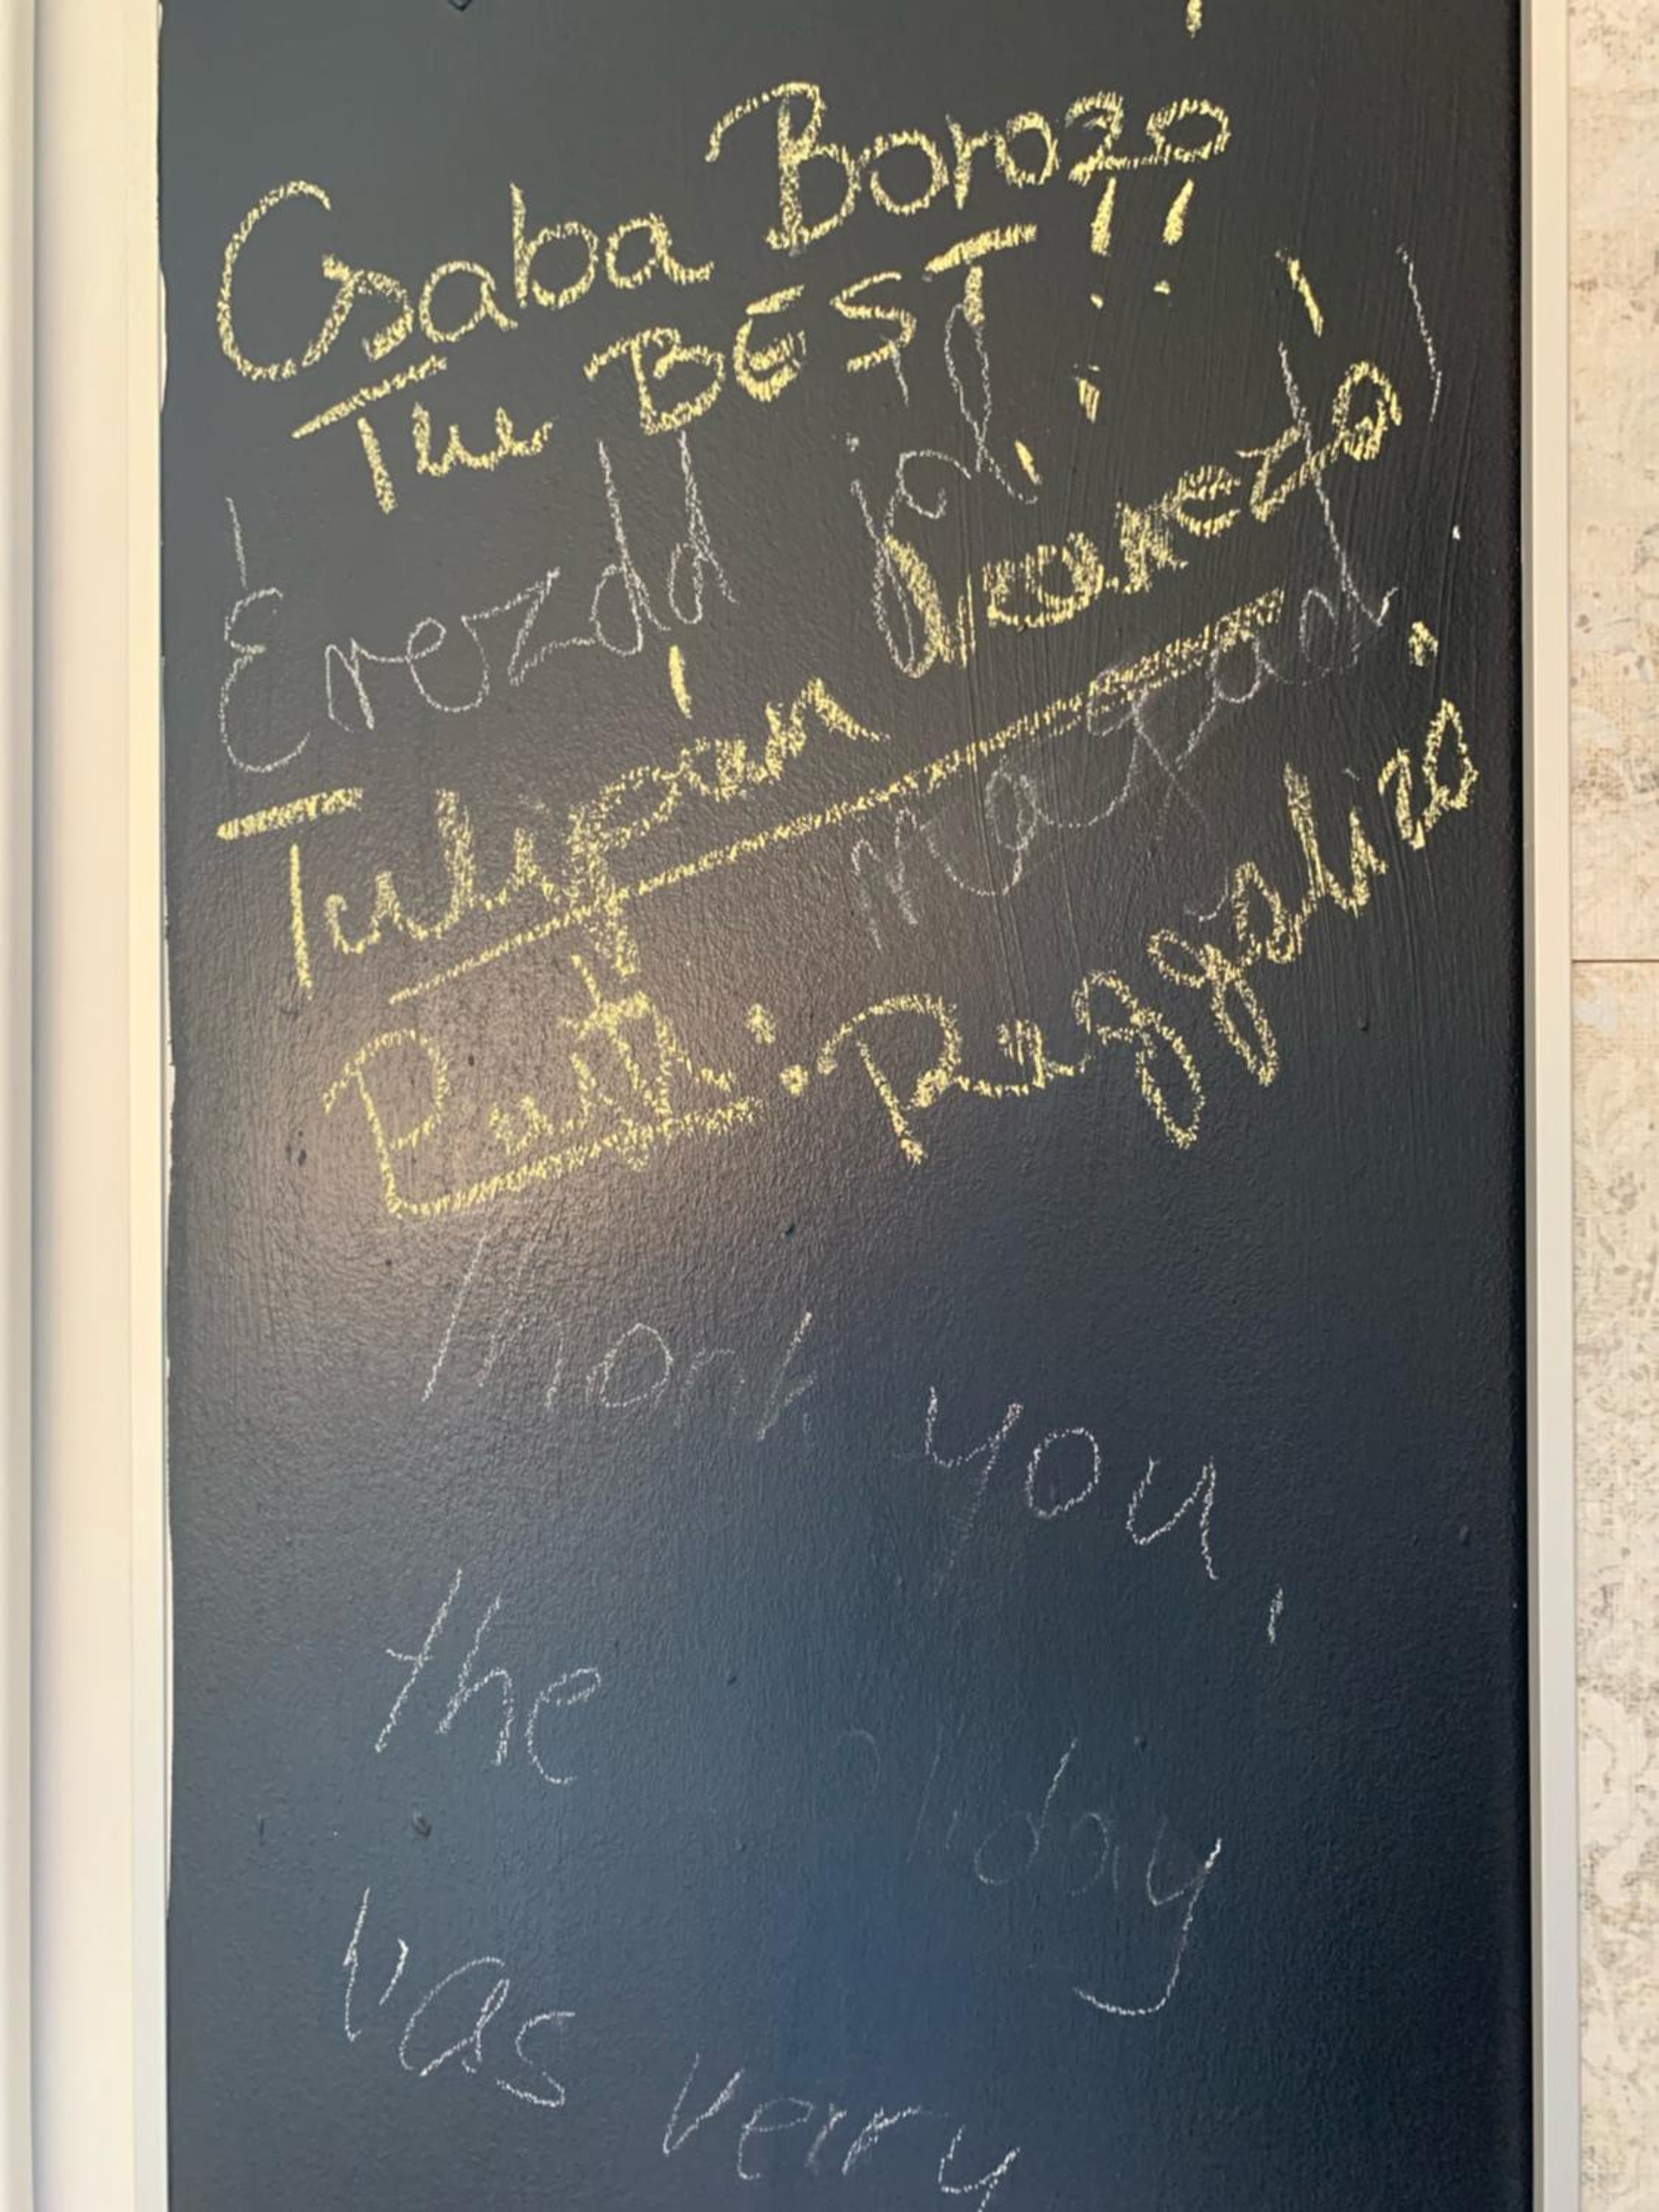 Csaba Borozó
The BEST!!
Érezdd jól
magad!
Tulipán Vonézó
Ruti: Reggeliző
Thank you,
the oliday
was verry